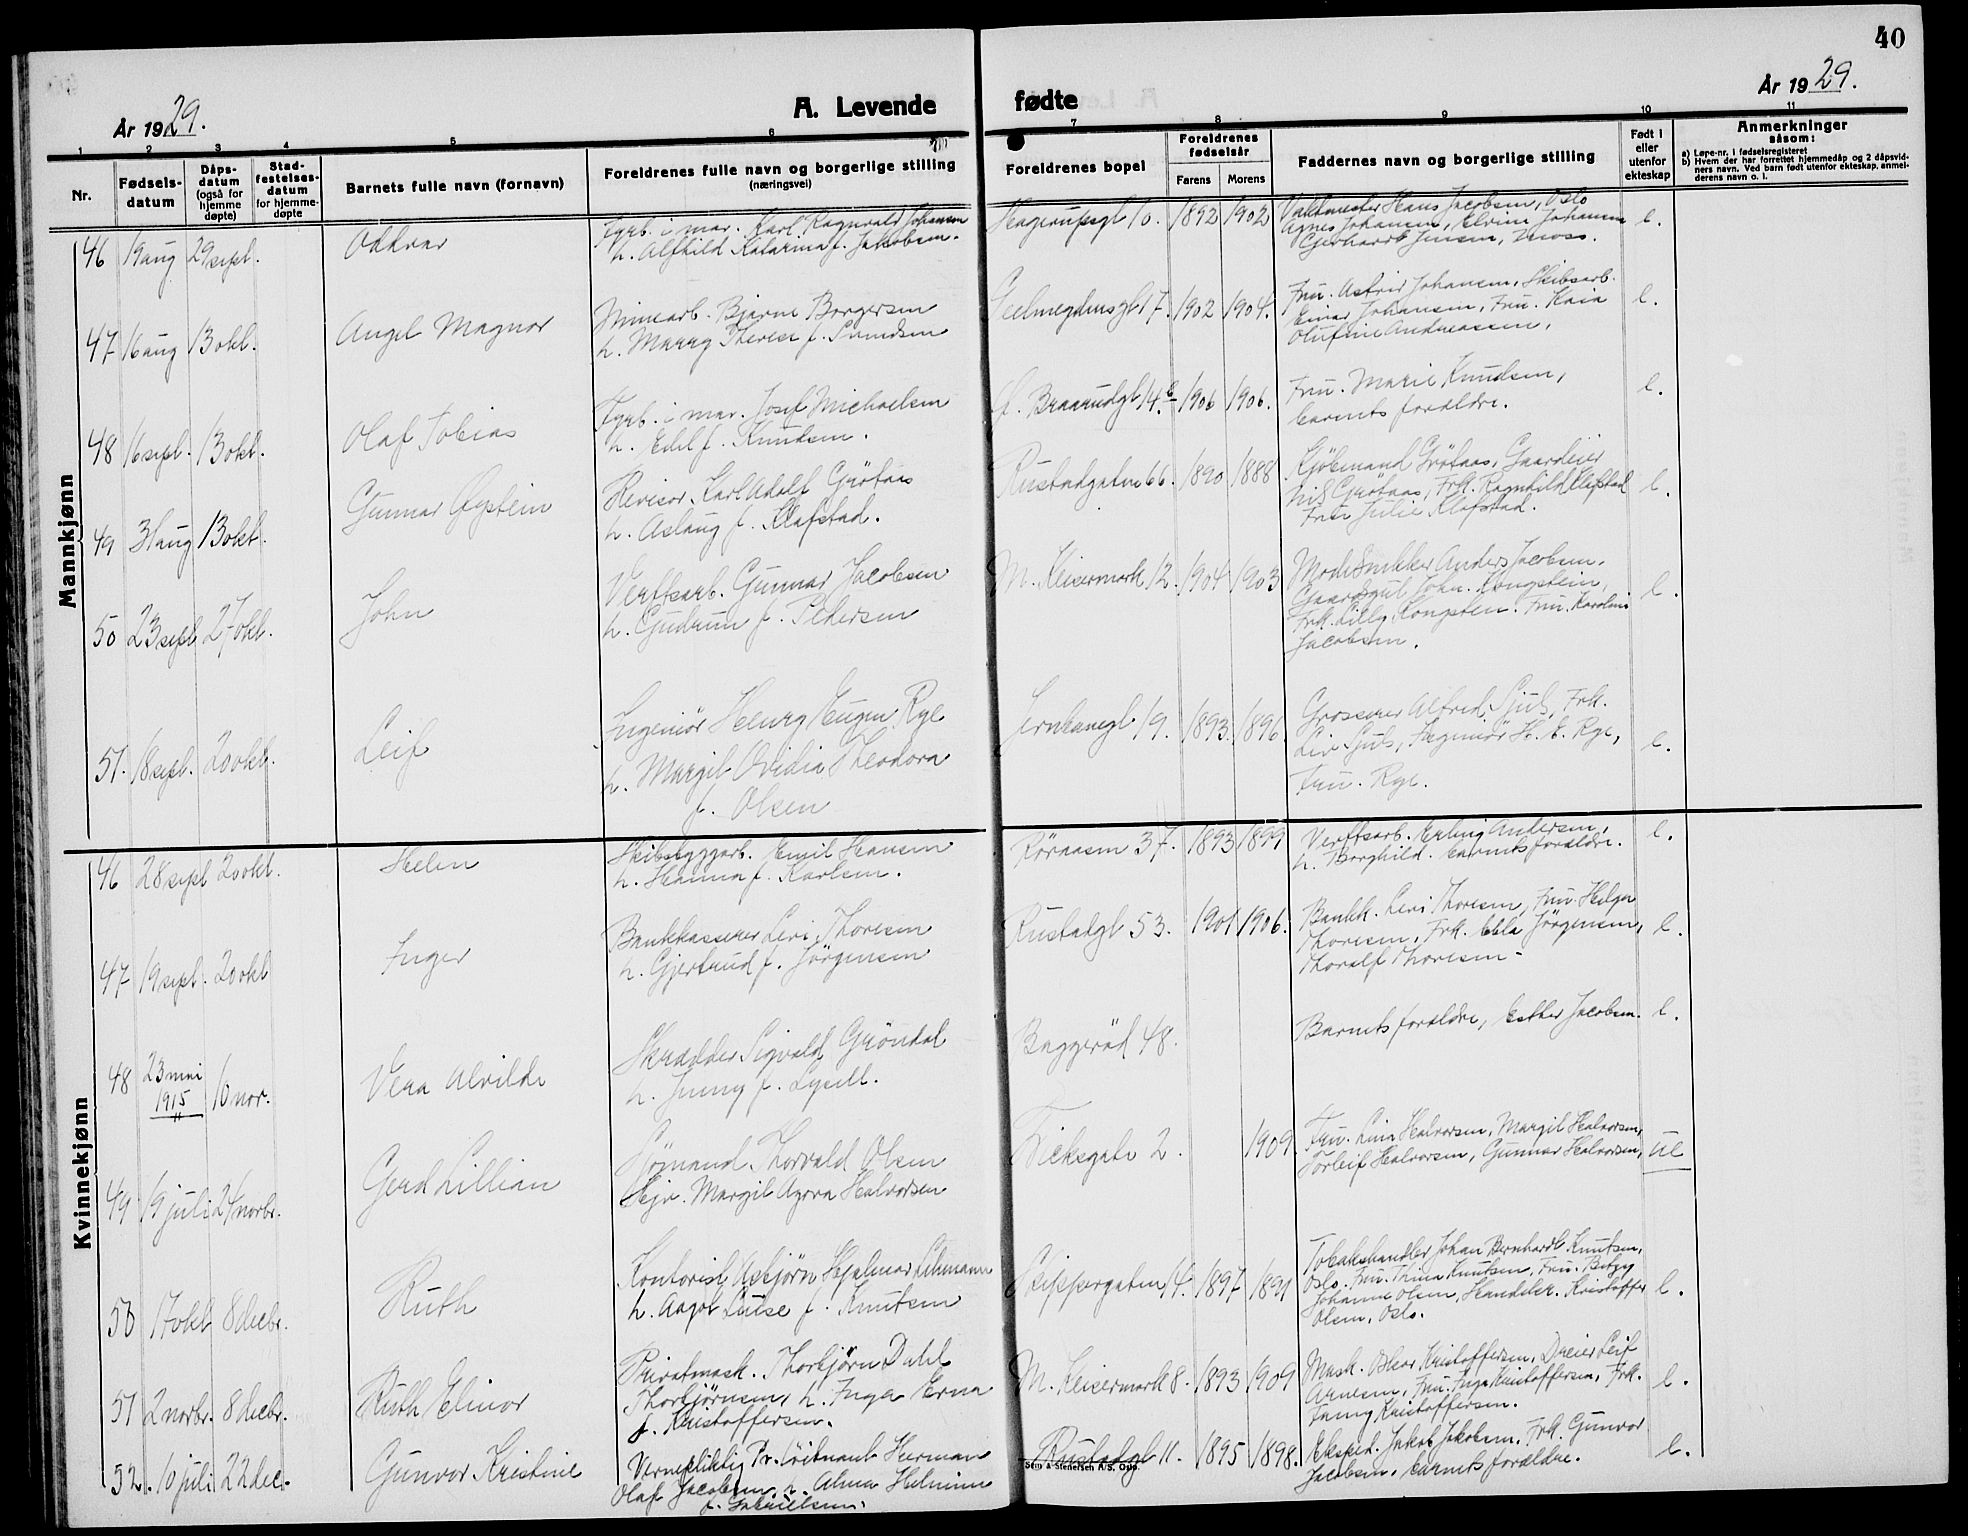 40
År 1929.
A. Levende fødte
År 1929.
1 2 3 4 5 6 7 8 9 10 11
Nr.
Fødsels-
datum
Dåps-
datum
(også for
hjemme
døpte)
Stad-
festelses-
datum
for hjemme-
døpte
Barnets fulle navn (fornavn)
Foreldrenes fulle navn og borgerlige stilling
(næringsvei)
Foreldrenes bopel
Foreldrenes
fødselsår
Farens Morens
Faddernes navn og borgerlige stilling
Født i
eller
utenfor
ekteskap
Anmerkninger
såsom:
a) Løpe-nr. i fødselsregisteret
b) Hvem der har forrettet hjemmedåp og 2 dåpsvid-
ners navn. Ved barn født utenfor ekteskap, anmel-
derens navn o. l.
Mannkjønn
46 19 aug 29 sept. Oddvar
Fyrb. i mar. Karl Ragnvald Johansen
h. Alfhild Katarina f. Jakobsen.
Hagerupsgt 10. 1892 1902
Vaktmester Hans Jacobsen, Oslo
Agnes Johansen, Elvine Johansen
Gerhardt Jensen, Moss.
e.
47 16 aug 13 okt. Angel Magnor
Minearb. Bjarne Borgersen
h. Marry Therese f. Svendsen
17. 1902 1904.
Fru. Astrid Johansen, Skibsarb.
Einar Johansen, Fru. Kaia
Olufine Andreassen,
e.
48 16 sept. 13 okt. Olaf Tobias
Fyrb. i mar. Josef Michaelsen
h. Edel f. Knudsen.
Braarudgt 14.b 1906 1906.
Fru. Marie Knudsen,
barnets forældre.
e.
49 31 aug 13 okt. Gunnar Øystein
Revisor Karl Adolf Grötaas
h. Aslaug f. Klafstad.
Rustadgaten 66. 1890 1888
Kjöbmand Grötaas, Gaardeier
Nils Grötaas, Frk. Ragnhild Klafstad
Fru Julie Klafstad.
e.
50 23 sept 27 okt. John
Verftsarb. Gunnar Jacobsen
h. Gudrun f. Pedersen
M. Keisermark 12. 1904 1903
Modelsnikker Anders Jacobsen.
Gaardsgut John Kongstein,
Frk. Lilly Kongsten. Fru. Karoline
Jacobsen.
e.
51. 18 sept. 20 okt. Leif
Ingeniör Henry Eugen Rye
h. Margit Ovidia Theodora
f. Olsen
Jernbanegt 19. 1893. 1896.
Grosserer Alfred Sjuls, Frk.
Liv Sjuls, Ingeniör H. E. Rye,
Fru. Rye.
e.
Kvinnekjønn
46 28 sept 20 okt. Helen
Skibsbyggarb. Emil Hansen
h. Hanna f. Karlsen.
Röraasen 37. 1893 1899
Verftsarb. Erling Andersen,
h. Borghild. barnets forældre.
e.
47 19 sept. 20 okt Inger
Bankkasserer Levi Thoresen
h. Gjertrud f. Jörgensen
Rustadgt 53. 1901 1906.
Bankk. Levi Thoresen, Fru. Helga
Thoresen, Frk. Ella Jörgensen,
Thoralf Thoresen -
e.
48 23 mai
1915
10 nov. Vera Alvilde
Skrædder Sigvald Gröndal
h. Jenny f. Lysell.
Baggeröd 48.
Barnets forældre, Esther Jacobsen.
e.
49 19 juli 24 novbr. Gerd Lillian
Sjömand Thorvald Olsen
Hejv. Margit Agova Halvorsen
Dicksgate 2. 1909.
Fru. Lina Halvorsen, Margit Halvorsen,
Torleif Halvorsen, Gunnar Halvorsen,
ue
50 17 okt 8 decbr. Ruth
Kontorist Asbjørn Hjalmar Lehmann
h. Aagot Luise f. Knutsen
Skippergaten 14. 1897 1899
Tobakshandler Johan Bernhardt Knutsen,
Oslo. Fru. Thina Knutsen, Fru. Betzy
Johanne Olsen, Handelsr. Kristoffer
Olsen, Oslo.
e.
51 2 novbr. 8 decbr. Ruth Elinor
Privatmask. Thorbjörn Dahl
Thorbjörnsen, h. Inga Erna
f. Kristoffersen.
M. Keisermark 8. 1893 1909
Mask. Oskar Kristoffersen, Dreier Leif
Arnesen, Fru. Inga Kristoffersen, Frk.
Fanny Kristoffersen.
e.
52. 10 juli 22 dec. Gunvor Kristine
Vernepliktig Pr. löitnant Herman
Olaf Jacobsen, h. Alma Helmine
f. Gabrielsen.
Rustadgt 11. 1895 1898.
Eksped. Jakob Jakobsen, Frk. Gunvor
Jacobsen, barnets forældre.
e.
Sem & Stenersen A/S, Oslo.